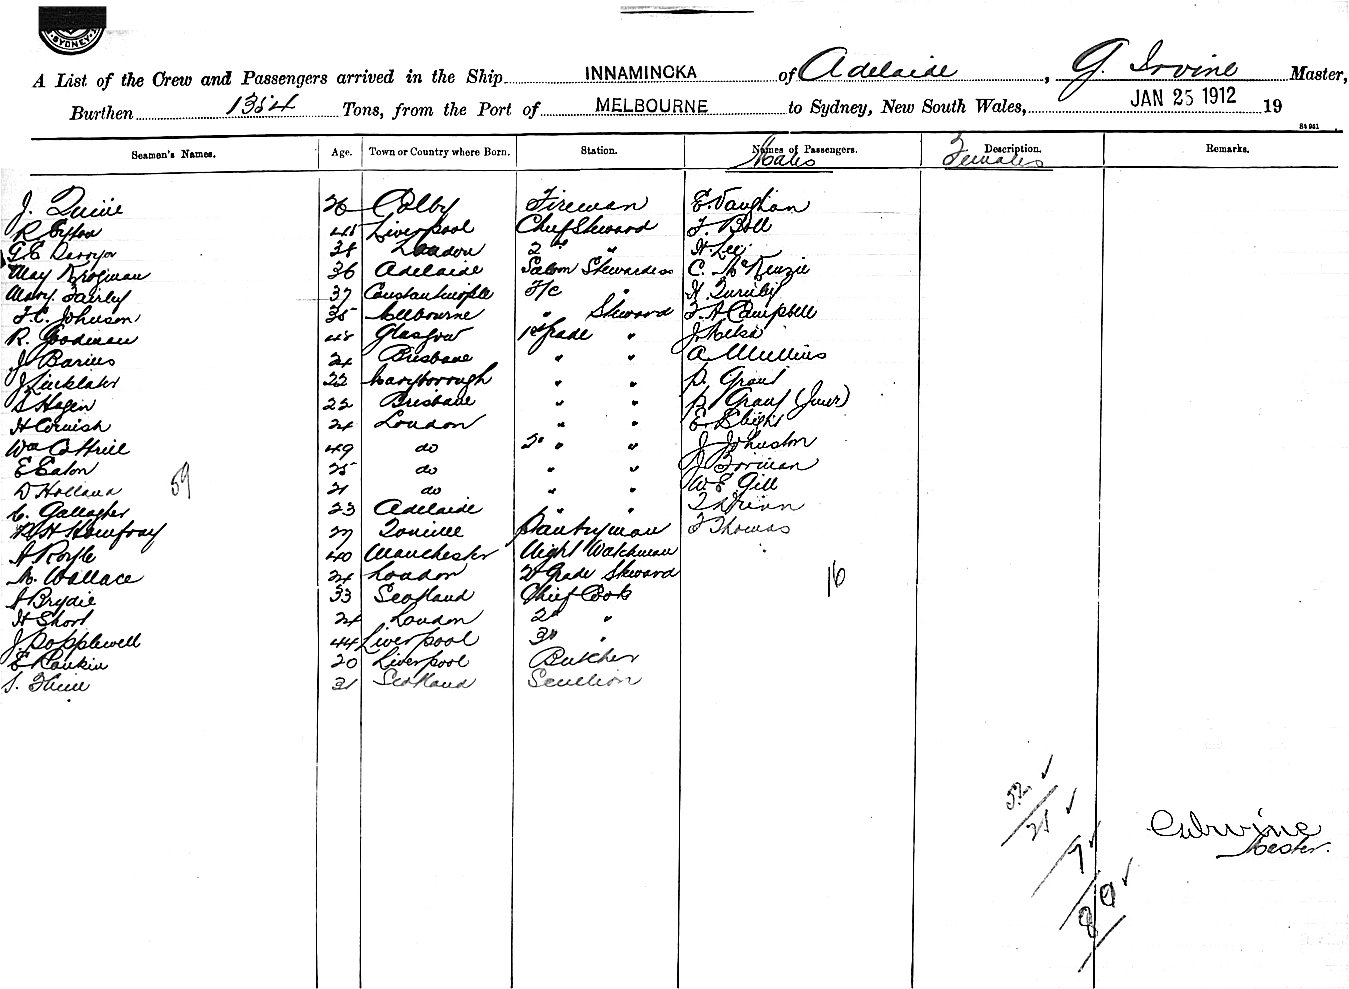 SYDNEY
A List of the Crew and Passengers arrived in the Ship INNAMINCKA of Adelaide, G. Irvine Master,
Burthen 1354 Tons, from the Port of MELBOURNE to Sydney, New South Wales, JAN 25 1912 19
Seamen's Names. Age. Town or Country where Born. Station. Names of Passengers. Description. Remarks.
Males Females
J. 26 Colby Fireman E. Vaughan
R 45 Liverpool Chief Steward F. Boll
G E 38 London 2nd " H. Lee
May Krogman 36 Adelaide Saloon Stewardess C. McKenzie
Mary Fairley 37 Constantinople F/c "
F.C. Johnson 35 Melbourne " Steward F. A Campbell
R. Goodman 48 Glasgow 1st Grade " J.
J Barius 24 Brisbane " " A Mullins
J Linklater 22 Maryborough " " P. Grant
Hagen 22 Brisbane " " P. Grant (Junr)
H Cornish 24 London " " E Bligh
Wm Cottrill 49 do 2nd " " J Johnston
E Eaton 25 do " " J Borman
D Holland 21 do " " W. E. Gill
59
C. Gallagher 23 Adelaide " "
H Homfray 27 Pantryman F Thomas
A Royle 40 Manchester Night Watchman
M. Wallace 24 London 2nd Grade Steward
16
A Brydie 33 Scotland Chief Cook
H Short 24 London 2nd "
J Popplewell 44 Liverpool 3rd "
E Rankin 20 Liverpool Butcher
S. 31 Scotland Scullion
52
25
7
89
G Irvine
Master.